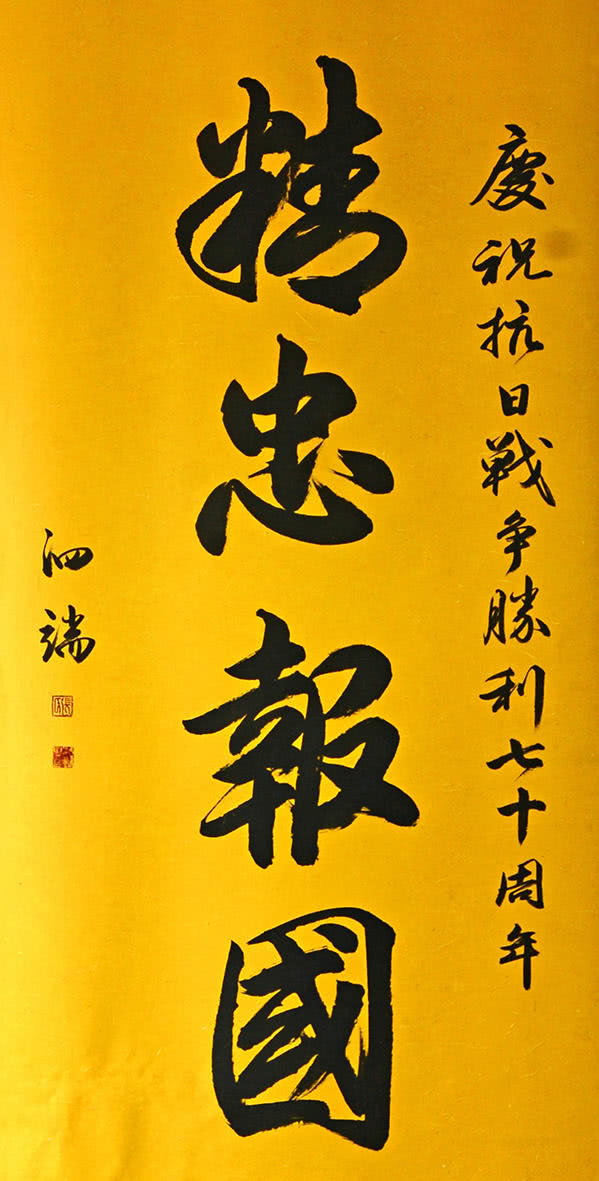 慶祝抗日戰争勝利七十周年
精忠報國
泗端